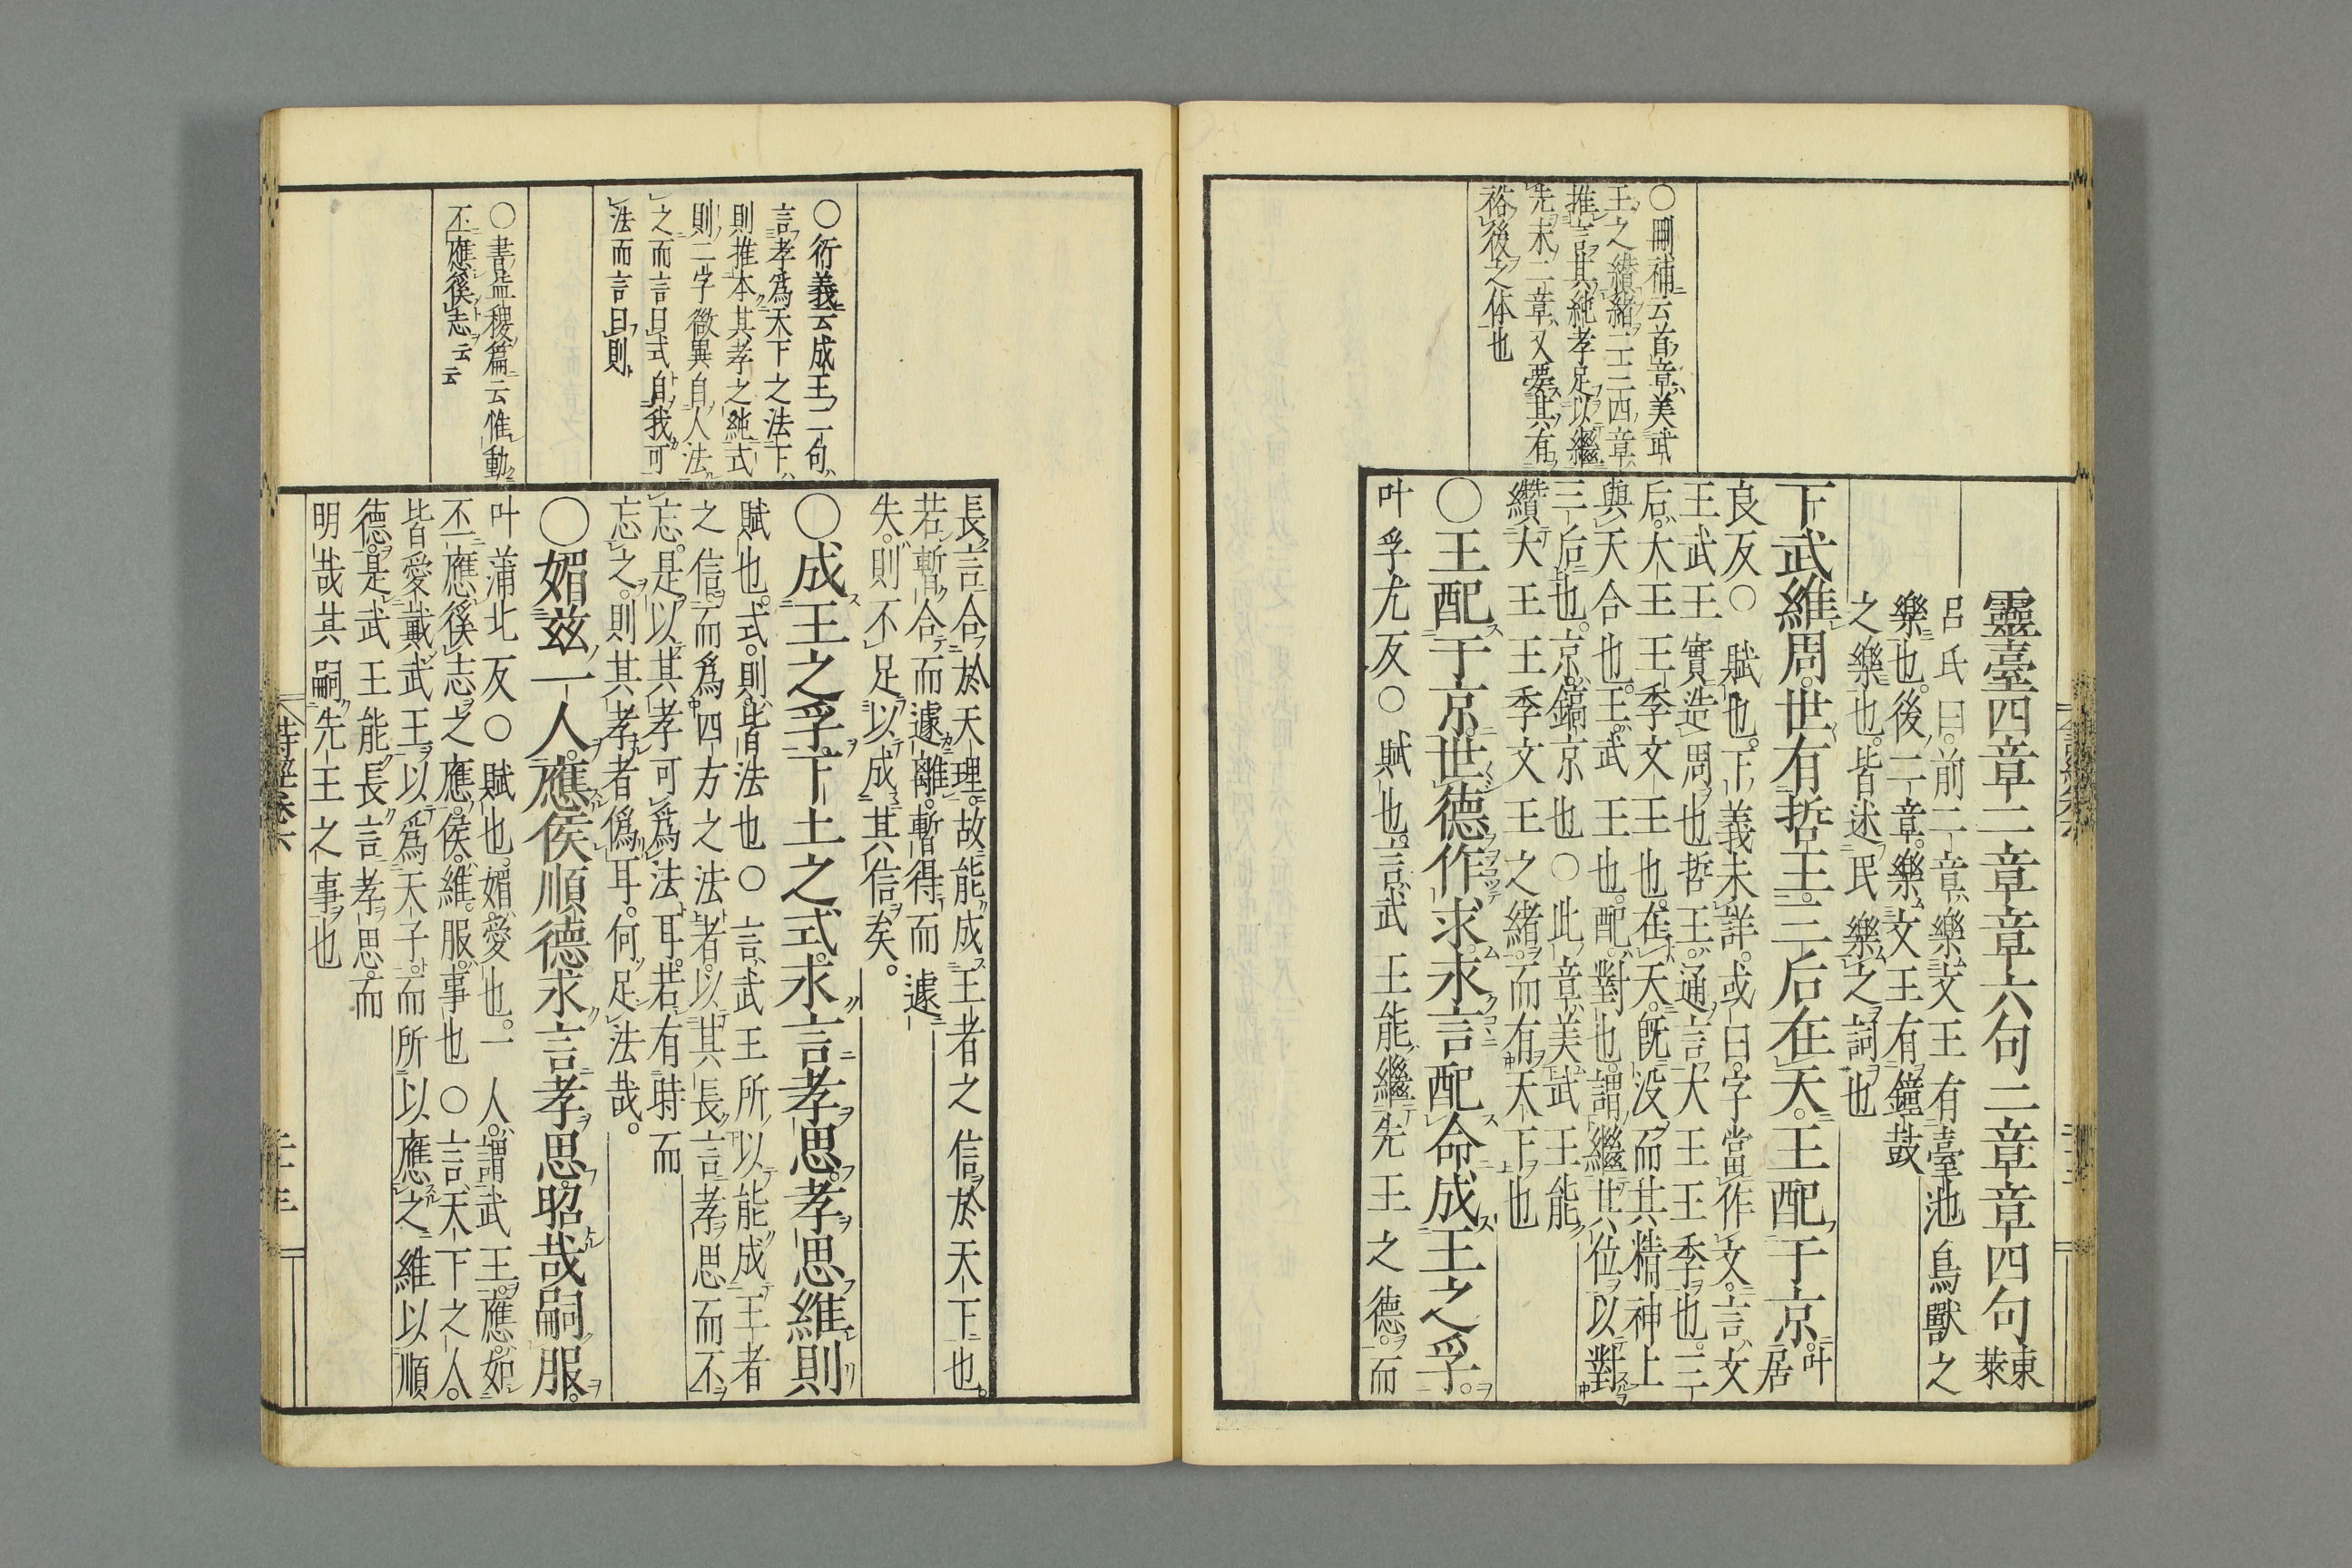 ○刪補云首章美武
王之纉緒二三四章
推言其純孝足以繼
先末二章又要其有
裕後之体也
靈臺四章二章章六句二章章四句
東萊
呂氏曰前二章樂文王有臺池鳥獸之
樂也後二章樂文王有鐘鼓
之樂也皆述民樂之詞也
下武維周世有哲王三后在天王配于京
叶居
良反○賦也下義未詳或曰字當作文言文
王武王實造周也哲王通言大王王季也三
后大王王季文王也在天旣没而其精神上
與天合也王武王也配對也謂繼其位以對
三后也京鎬京也○此章美武王能
纘大王王季文王之緒而有天下也
○王配于京世德作求永言配命成王之孚
叶孚尤反○賦也言武王能繼先王之德而
長言合於天理故能成王者之信於天下也
若暫合而遽離暫得而遽
失則不足以成其信矣
○成王之孚下土之式永言孝思孝思維則
賦也式則皆法也○言武王所以能成王者
之信而爲四方之法者以其長言孝思而不
忘是以其孝可爲法耳若有時而
忘之則其孝者僞耳何足法哉
○媚兹一人應侯順德永言孝思昭哉嗣服
叶蒲北反○賦也媚愛也一人謂武王應如
丕應徯志之應侯維服事也○言天下之人
皆愛戴武王以爲天子而所以應之維以順
德是武王能長言孝思而
明哉其嗣先王之事也
○衍義云成王二句
言孝爲天下之法下
則推本其孝之純式
則二字微異自人法
之而言曰式自我可
法而言曰則
○書益稷篇云惟動
丕應徯志云云